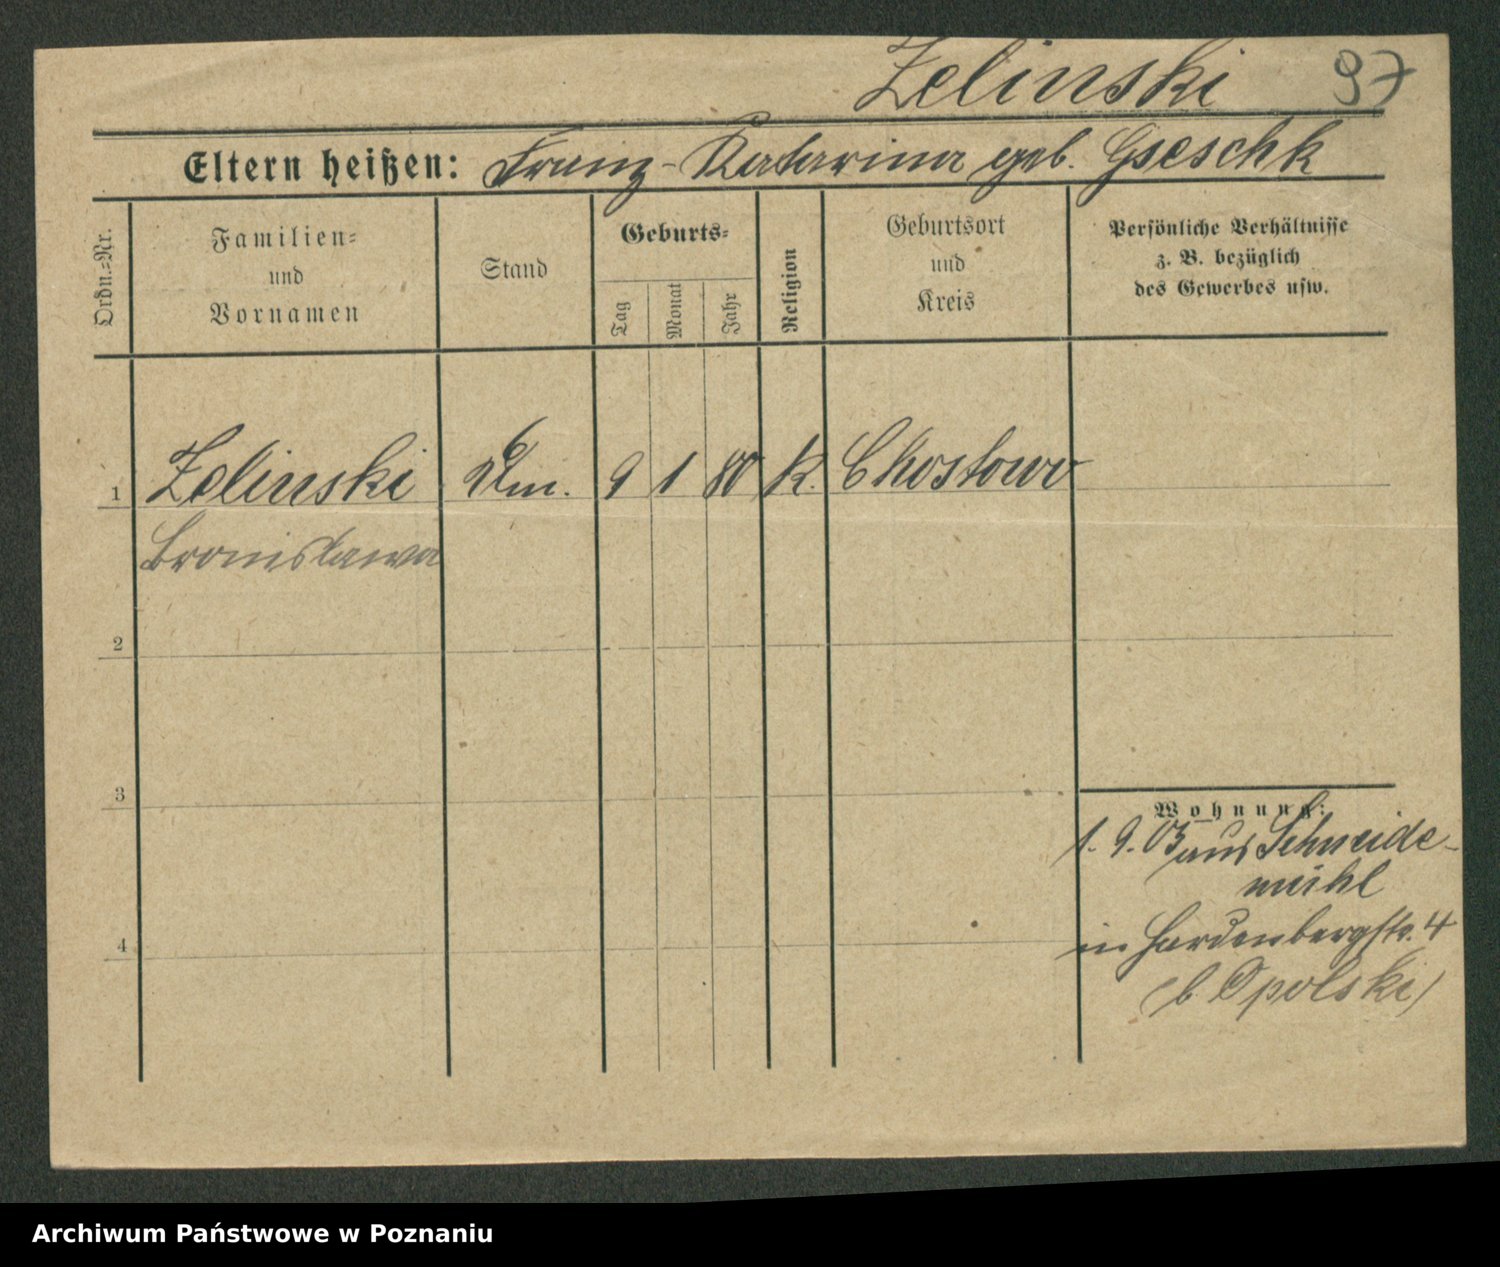 Zelinski 97
Eltern heißen: Franz - Katarina geb. Gseschk
Ordn.=Nr.
Familien=
und
Vornamen
Stand
Geburts=
Tag
Monat
Jahr
Religion
Geburtsort
und
Kreis
Persönliche Verhältnisse
z. B. bezüglich
des Gewerbes usw.
1 Zelinski 9 1 80 K. Chostowo
Bronislawa
2
3
Wohnung:
1. 9. 03 aus Schneide-
mühl
4
in Hardenbergstr. 4
(b. Opolski)
Archiwum Państwowe w Poznaniu